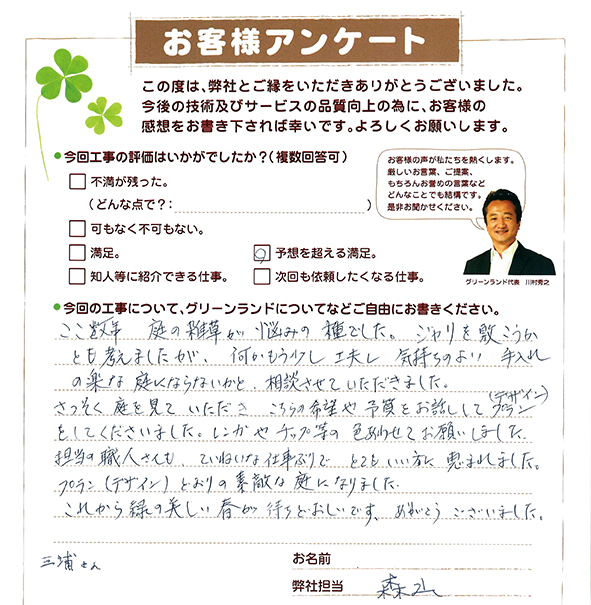 お客様アンケート
この度は、弊社とご縁をいただきありがとうございました。
今後の技術及びサービスの品質向上の為に、お客様の
感想をお書き下されば幸いです。よろしくお願いします。
●今回工事の評価はいかがでしたか?(複数回答可)
お客様の声が私たちを熱くします。
厳しいお言葉、ご提案、
もちろんお誉めの言葉など
どんなことでも結構です。
是非お聞かせください。
□ 不満が残った。
(どんな点で?: )
□ 可もなく不可もない。
□ 満足。 ☑ 予想を超える満足。
□ 知人等に紹介できる仕事。 □ 次回も依頼したくなる仕事。
グリーンランド代表 川村秀之
●今回の工事について、グリーンランドについてなどご自由にお書きください。
ここ数年 庭の雑草が悩みの種でした。ジャリを敷こうか
とも考えましたが、何かもう少し工夫し 気持ちのよい 手入れ
の楽な庭にならないかと、相談させていただきました。
さっそく庭を見ていただき こちらの希望や予算をお話しして プラン(デザイン)
をしてくださいました。レンガやチップ等の色あわせてお願いしました。
担当の職人さんも、ていねいな仕事ぶりで とてもいい方に恵まれました。
プラン(デザイン)とおりの素敵な庭になりました。
これから緑の美しい春が待ちどおしいです。ありがとうございました。
お名前
三浦さん
弊社担当 森山